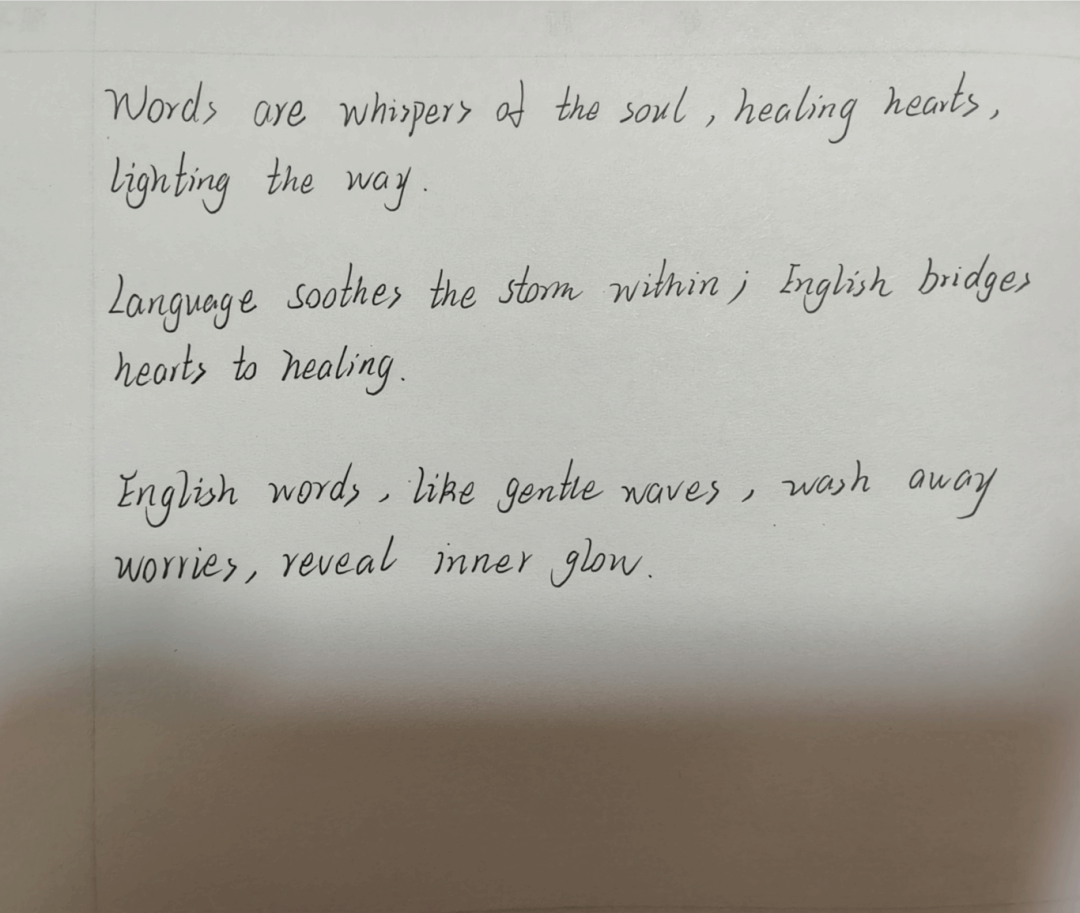 Words are whispers of the soul, healing hearts,
lighting the way.
Language soothes the storm within; English bridges
hearts to healing.
English words, like gentle waves, wash away
worries, reveal inner glow.